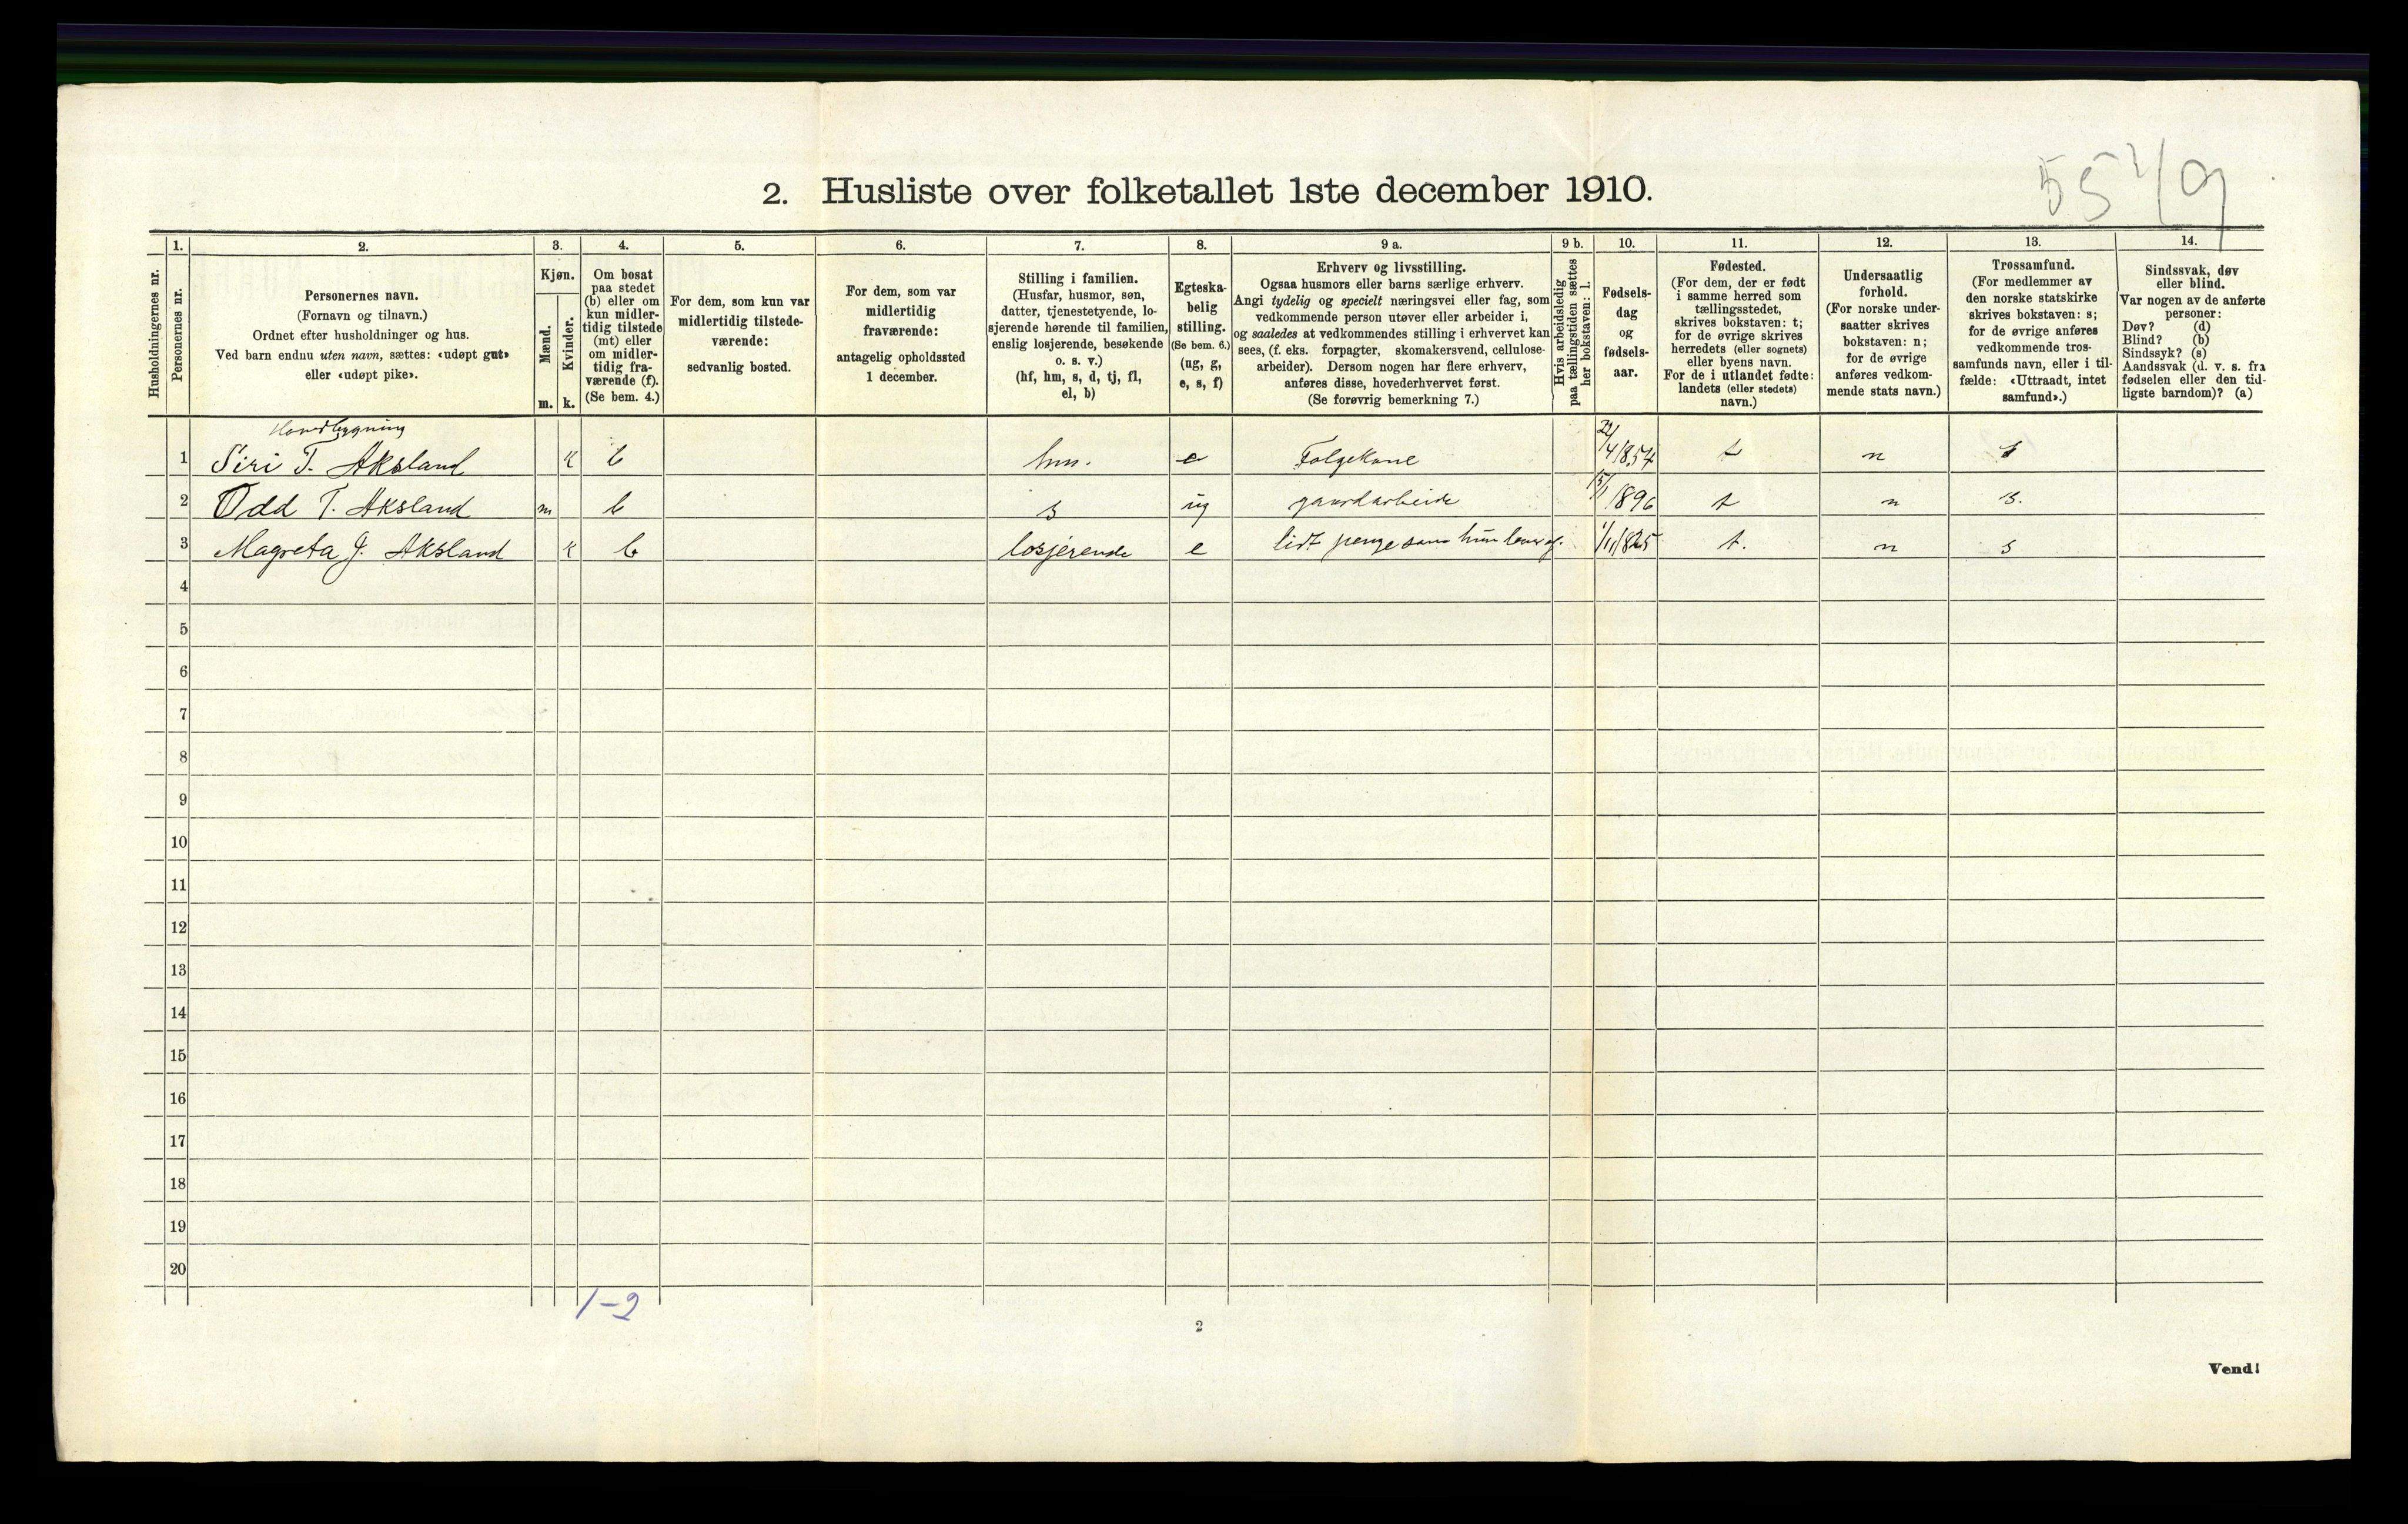 55 2/9
2. Husliste over folketallet 1ste december 1910.
Husholdningernes nr.
1.
Personernes nr.
2.
Personernes navn.
(Fornavn og tilnavn.)
Ordnet efter husholdninger og hus.
Ved barn endnu uten navn, sættes: «udøpt gut»
eller «udøpt pike».
3.
Kjøn.
Mænd.
m.
Kvinder.
k.
4.
Om bosat
paa stedet
(b) eller om
kun midler-
tidig tilstede
(mt) eller
om midler-
tidig fra-
værende (f).
(Se bem. 4.)
5.
For dem, som kun var
midlertidig tilstede-
værende:
sedvanlig bosted.
6.
For dem, som var
midlertidig
fraværende:
antagelig opholdssted
1 december.
7.
Stilling i familien.
(Husfar, husmor, søn,
datter, tjenestetyende, lo-
sjerende hørende til familien,
enslig losjerende, besøkende
o. s. v.)
(hf, hm, s, d, tj, fl,
el, b)
8.
Egteska-
belig
stilling.
(Se bem. 6.)
(ug, g,
e, s, f)
9 a.
Erhverv og livsstilling.
Ogsaa husmors eller barns særlige erhverv.
Angi tydelig og specielt næringsvei eller fag, som
vedkommende person utøver eller arbeider i,
og saaledes at vedkommendes stilling i erhvervet kan
sees, (f. eks. forpagter, skomakersvend, cellulose-
arbeider). Dersom nogen har flere erhverv,
anføres disse, hovederhvervet først.
(Se forøvrig bemerkning 7.)
9 b.
Hvis arbeidsledig
paa tællingstiden sættes
her bokstaven: l.
10.
Fødsels-
dag
og
fødsels-
aar.
11.
Fødested.
(For dem, der er født
i samme herred som
tællingsstedet,
skrives bokstaven: t;
for de øvrige skrives
herredets (eller sognets)
eller byens navn.
For de i utlandet fødte:
landets (eller stedets)
navn.)
12.
Undersaatlig
forhold.
(For norske under-
saatter skrives
bokstaven: n;
for de øvrige
anføres vedkom-
mende stats navn.)
13.
Trossamfund.
(For medlemmer av
den norske statskirke
skrives bokstaven: s;
for de øvrige anføres
vedkommende tros-
samfunds navn, eller i til-
fælde: «Uttraadt, intet
samfund».)
14.
Sindssvak, døv
eller blind.
Var nogen av de anførte
personer:
Døv? (d)
Blind? (b)
Sindssyk? (s)
Aandssvak (d. v. s. fra
fødselen eller den tid-
ligste barndom)? (a)
1 Siri T. Aksland k b hm. e Folgekone /4 1854 t n s
2 Odd T. Aksland m b s ug gaardarbeide 15/1 1896 t n s.
3 Magreta J. Aksland k b losjerende e lidt penge som hun lever af. 1/11 1825 t. n s
4
5
6
7
8
9
10
11
12
13
14
15
16
17
18
19
20
1-2
2
Vend!